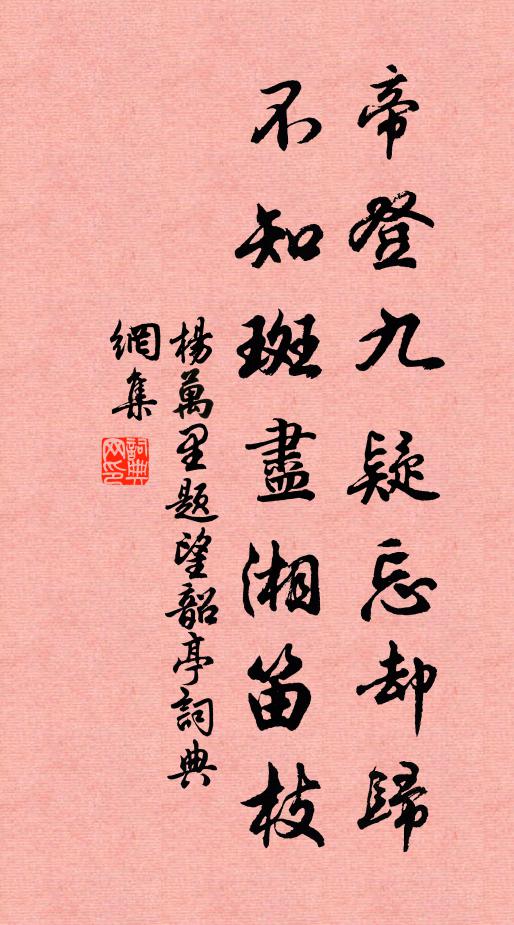 帝登九疑忘却歸
不知斑盡湘笛枝
楊萬里題望韶亭詞典
網集
詞典網印